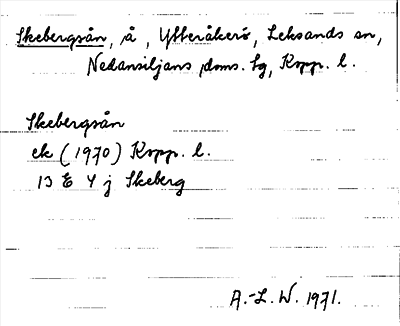 Skebergsån, å, Ytteråkerö, Leksands sn,
Nedansiljans doms. tg, Kopp. l.
Skebergsån
ek (1970) Kopp. l.
13 E 4 j Skeberg
A.-L. W. 1971.